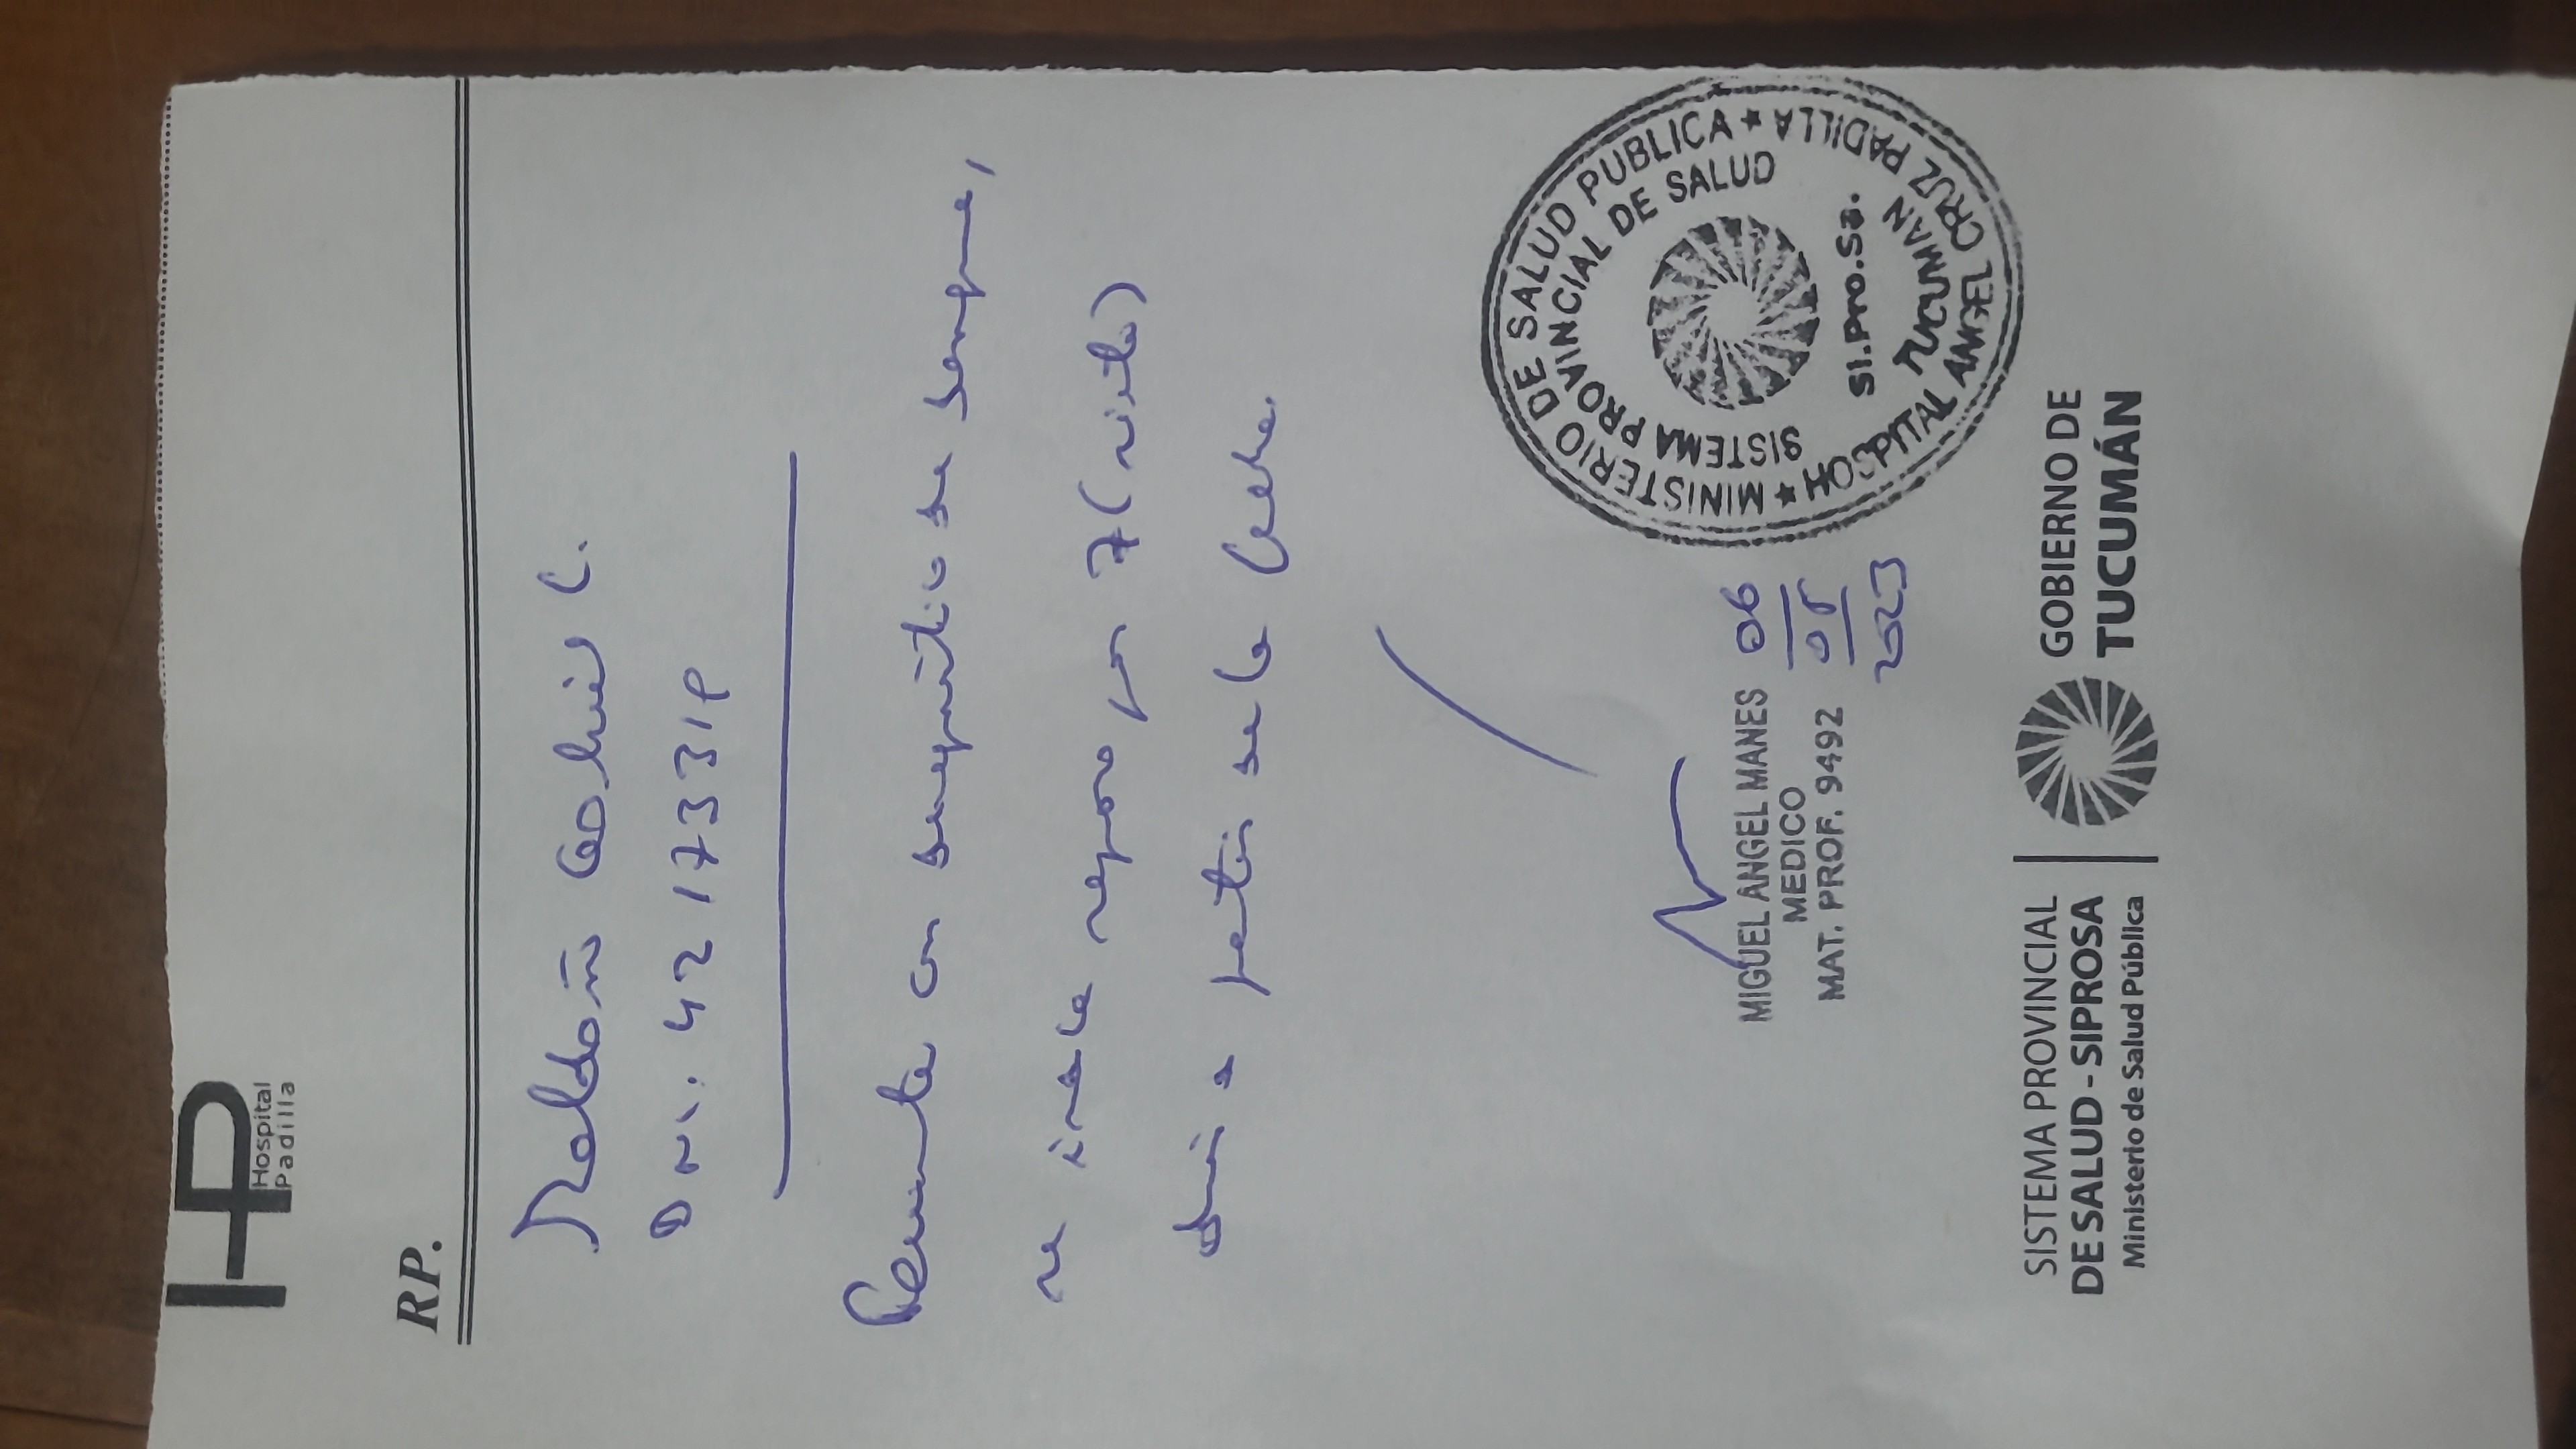 HP
Hospital
Padilla
RP.
Gabriel C.
DNI. 42173319
Paciente con diagnóstico de dengue,
se indica reposo por 7 (siete)
días a partir de la fecha.
MIGUEL ANGEL MANES
MEDICO
MAT. PROF. 9492
06
05
2023
★ MINISTERIO DE SALUD PUBLICA ★
SISTEMA PROVINCIAL DE SALUD
SI.Pro.Sa.
TUCUMAN
HOSPITAL ANGEL CRUZ PADILLA
SISTEMA PROVINCIAL
DE SALUD - SIPROSA
Ministerio de Salud Pública
GOBIERNO DE
TUCUMÁN